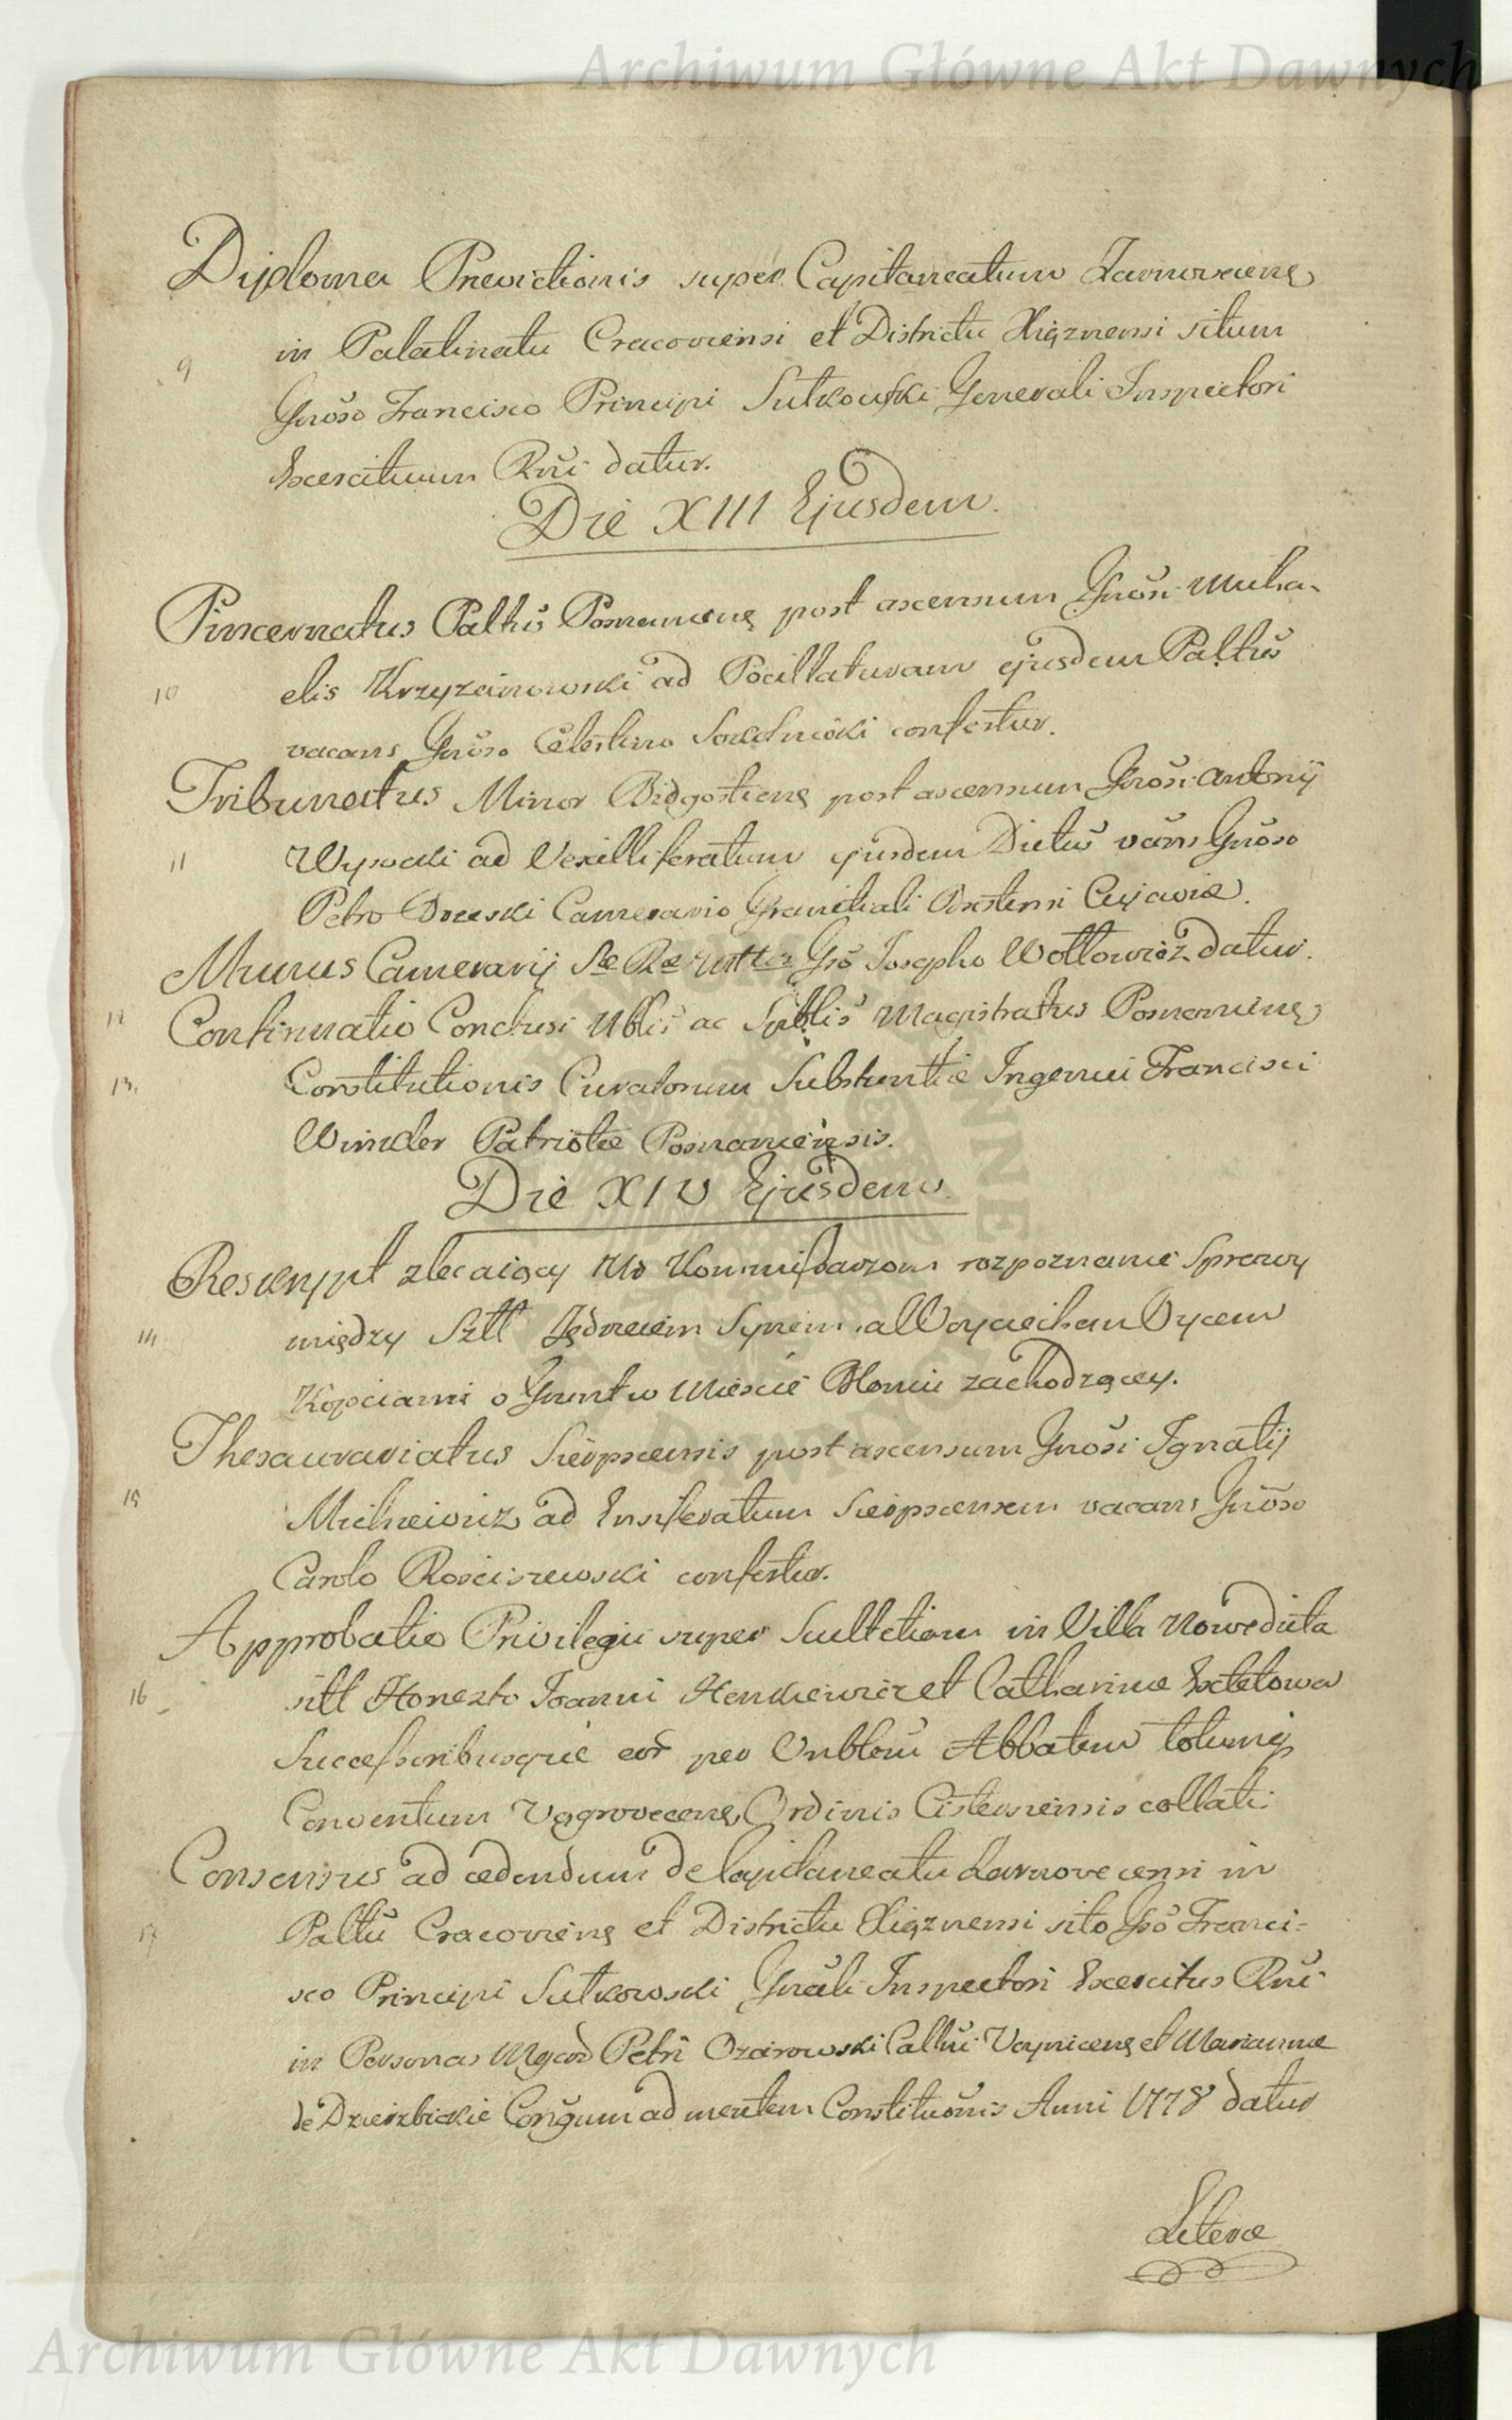 Archiwum Główne Akt Dawnych
Diploma Previctionis super Capitaneatum Zarnoviens
in Palatinatu Cracoviensi et Districtu Xiąznensi situm
9
Gnoso Francisco Principi Sułkowski Generali Inspectori
Exercituum Rni datur.
Die XIII Ejusdem.
Pincernatus Paltus Posnaniens post ascensum Gnosi Micha-
10 elis Krzyzanowski ad Pocillaturam ejusdem Paltus
vacans Gnoso Celestino Sokolnicki confertur.
Tribunatus Minor Bidgostiens post ascensum Gnosi Antonij
11 Wysocki ad Vexilliferatum ejusdem Dictus vans Gnoso
Petro Dorewski Camerario Granitiali Brestensi Cujaviæ.
Munus Camerarij Sæ Ræ Mttis Gso Josepho Wołłowicz datur.
12 Continuatio Conclusi Nblis ac Sptblis Magistratus Posnaniens
13. Constitutionis Curatorum Substantiæ Ingenui Francisci
Winder Patriotæ Posnaniensis.
Die XIV Ejusdem.
Reskrypt zlecaiący Ur Kommissarzom rozpoznanie Sprawy
14 między Sztt Jędrzeiem Synem, a Woyciechem Oycem
Kopciami o Grunt w Mieście Błoniu zachodzącey.
Thesaurariatus Sierpscensis post ascensum Gnosi Ignatij
15 Michniewicz ad Ensiferatum Sierpscensem vacans Gnoso
Carolo Rosciszewski confertur.
Approbatio Privilegii super Scultetiam in Villa Nowe dicta
16 sitt Honesto Joanni Henkiewicz et Catharinæ
Successoribusque eor per Vnblem Abbatem totumq
Conventum Vągrovecens Ordinis Cisterciensis collati
Consensus ad cedendum de Capitaneatu Zarnovecensi in
17 Paltu Cracoviens et Districtu Xiąznensi sito Gso Franci-
sco Principi Sułkowski Gnali Inspectori Exercitus Rni
in Personas Mgcor Petri Ozarowski Castni Voynicens et Mariannæ
de Dzierzbickie Congum ad mentem Constituonis Anni 1778 datur
Literæ
Archiwum Główne Akt Dawnych